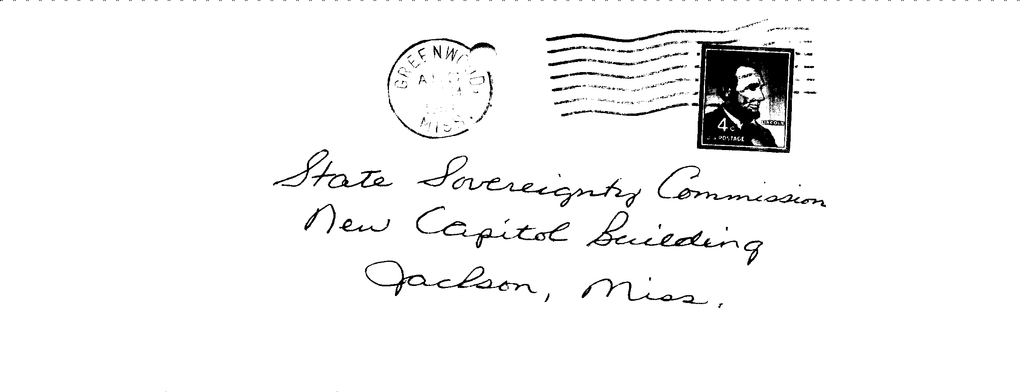 GREENWOOD,
MISS.
4¢
LINCOLN
U.S. POSTAGE
State Sovereignty Commission
New Capitol Building
Jackson, Miss.